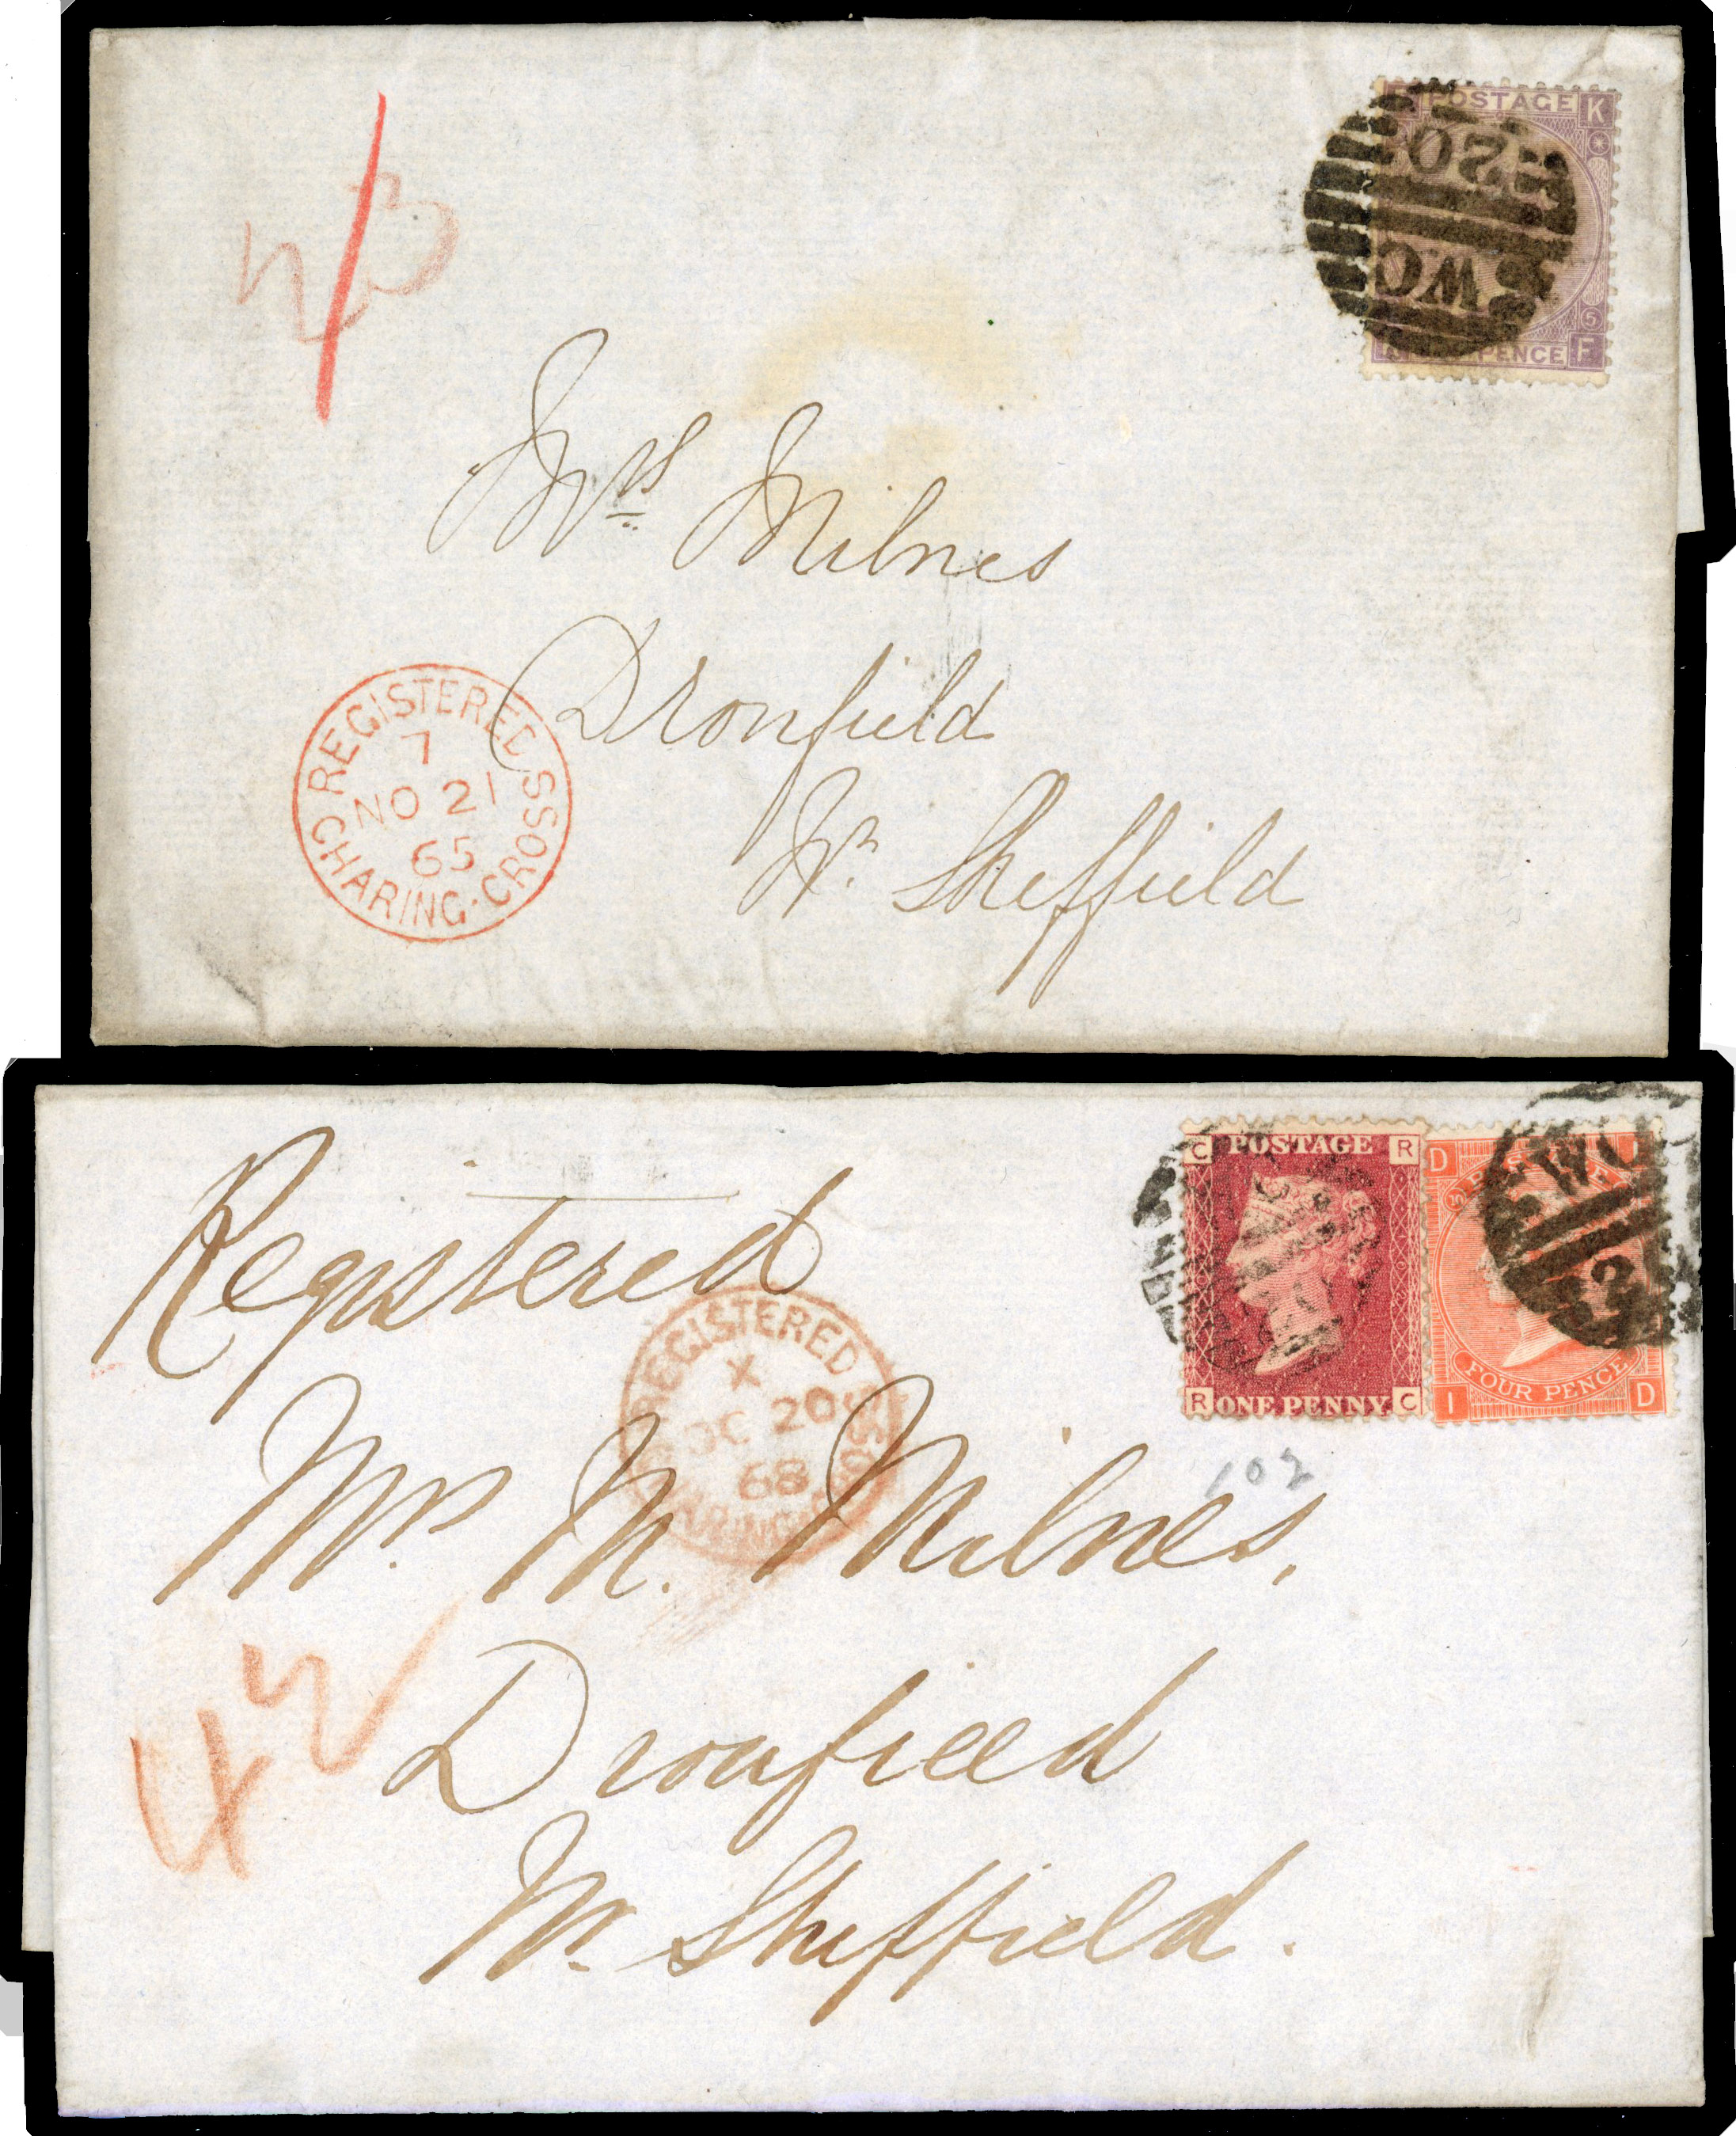 POSTAGE K
WC
20
5
PENCE F
Mrs Milnes
Dronfield
Nr. Sheffield
REGISTERED
7
NO 21
65
CHARING·CROSS
C POSTAGE R
R ONE PENNY C
D
WC
FOUR PENCE
I D
Registered
REGISTERED
X
OC 20
68
Mrs. M. Milnes,
102
42
Dronfield
Nr. Sheffield.